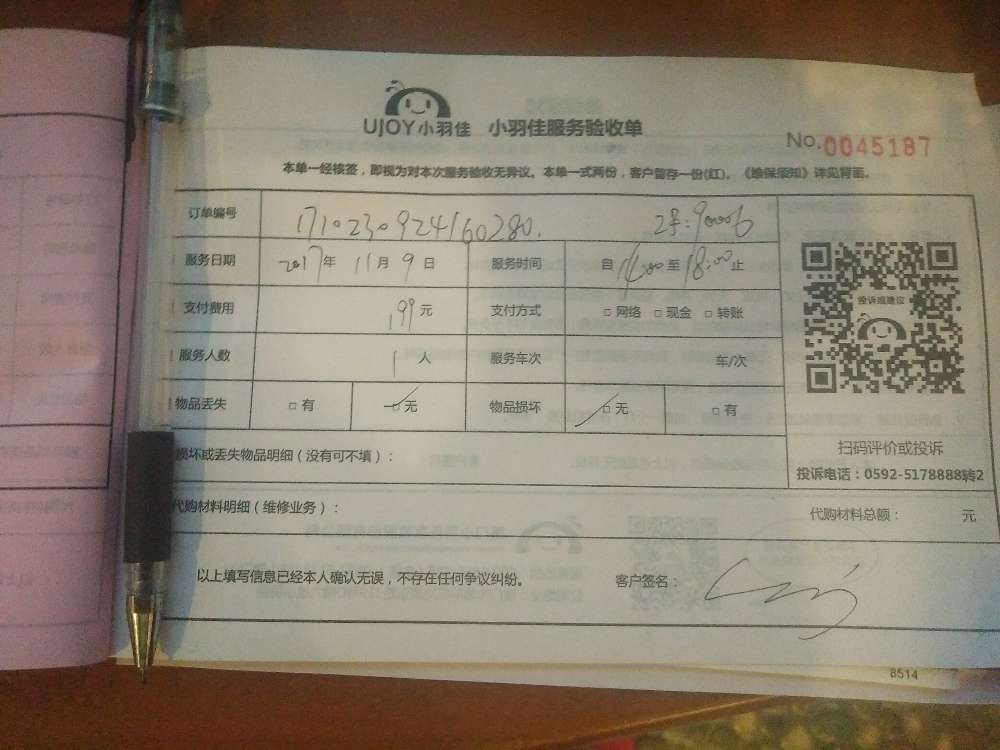 UJOY小羽佳 小羽佳服务验收单
No.0045187
本单一经核签，即视为对本次服务验收无异议。本单一式两份，客户暂存一份(红)。《维保须知》详见背面。
订单编号 1710230924160280.
服务日期 2017年 11月 9日 服务时间 自14:00至18:00止
支付费用 199元 支付方式 □网络 □现金 □转账
投诉或建议
服务人数 1人 服务车次 车/次
物品丢失 □有 □无 物品损坏 □无 □有
扫码评价或投诉
损坏或丢失物品明细（没有可不填）：
投诉电话：0592-5178888转2
代购材料明细（维修业务）：
代购材料总额： 元
以上填写信息已经本人确认无误，不存在任何争议纠纷。 客户签名：
8514